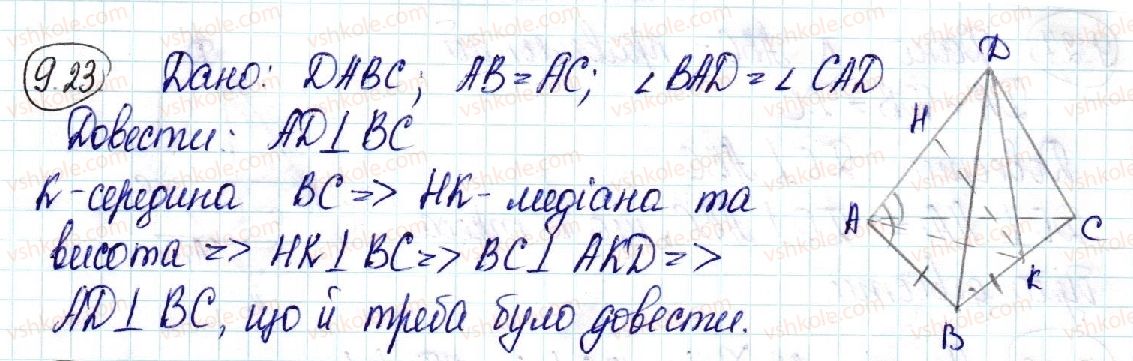 9.23 Дано: DABC; AB = AC; ∠BAD = ∠CAD
Довести: AD⊥BC
K-середина BC => HK-медіана та
висота => HK⊥BC => BC⊥AKD =>
AD⊥BC, що й треба було довести.
D
H
A
C
K
B